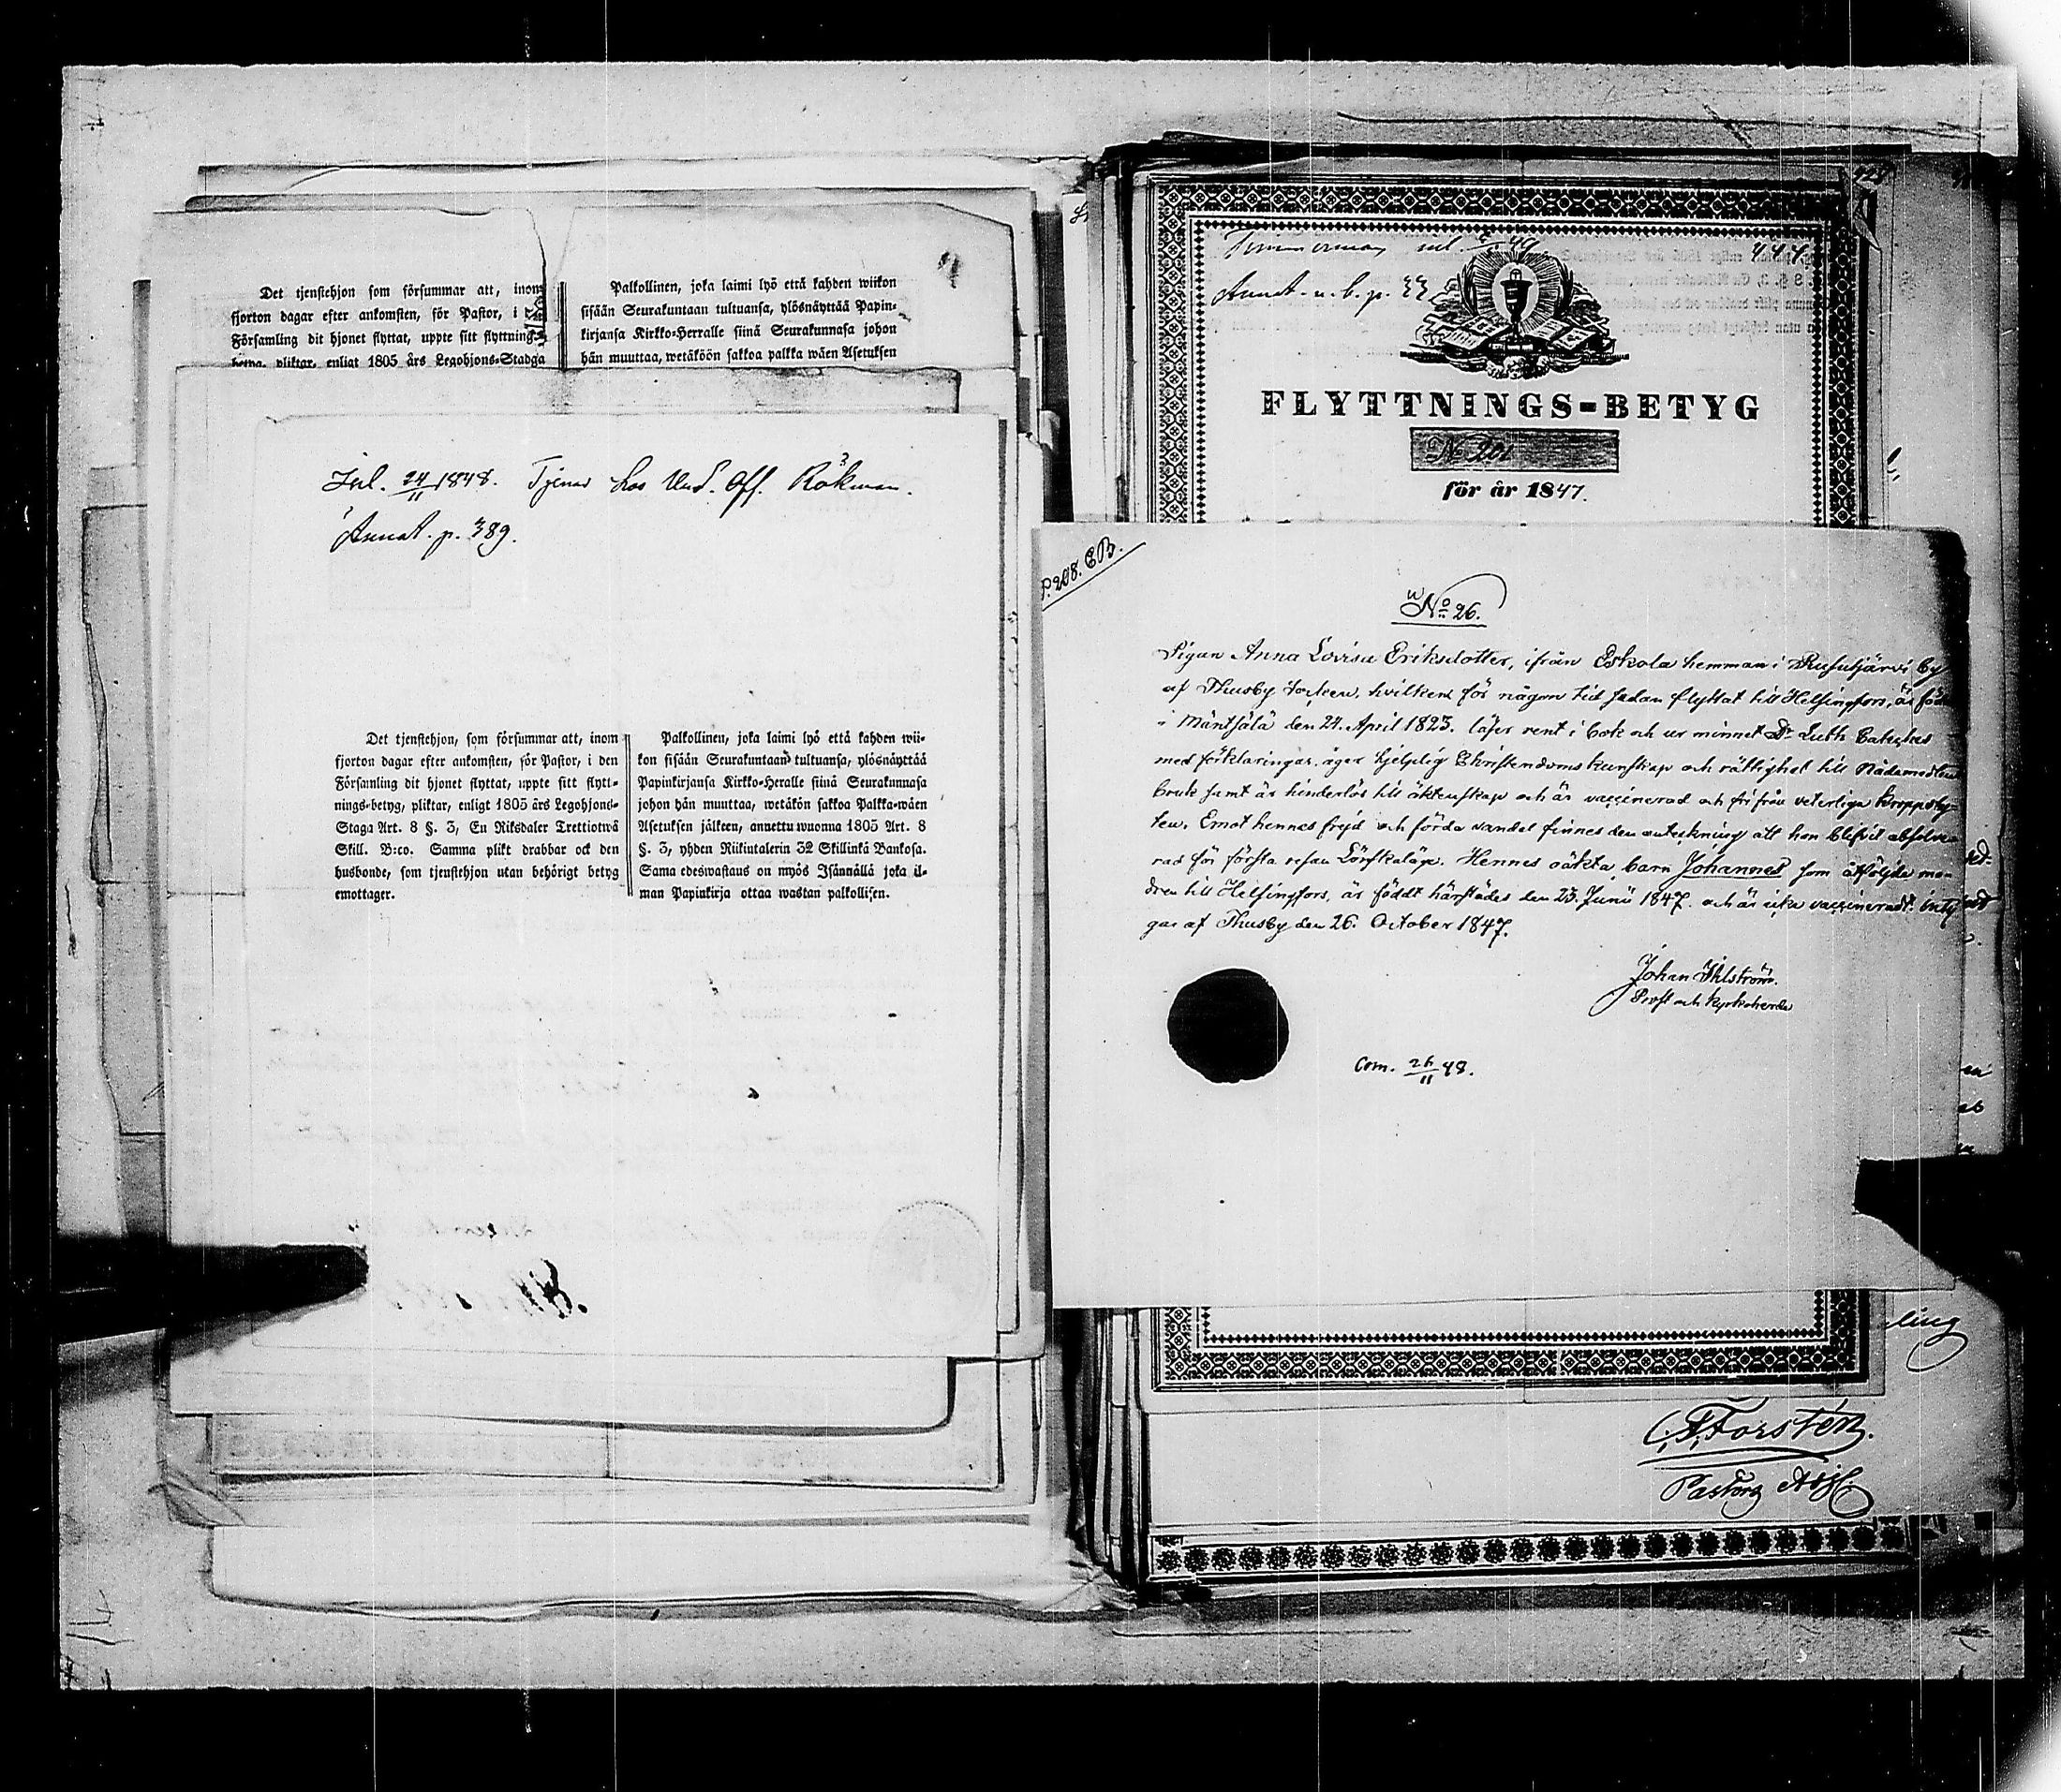 Det tjenstehjon som försummar att, inom
fjorton dagar efter ankomsten, för Pastor, i
Församling dit hjonet flyttat, uppte sitt flyttnings-
betyg, pliktar, enligt 1805 års Legohjons-Stadga
Palkollinen, joka laimi lyö että kahden wiikon
sisään Seurakuntaan tultuansa, ylösnäyttää Papin-
kirjansa Kirkko-Herralle siinä Seurakunnasa johon
hän muuttaa, wetäköön sakkoa palkka wäen Asetuksen
Inl. 24/11 1848. Tjenar hos Und. Off. Rökman.
Annot. p. 389.
Det tjenstehjon, som försummar att, inom
fjorton dagar efter ankomsten, för Pastor, i den
Församling dit hjonet flyttat, uppte sitt flytt-
nings-betyg, pliktar, enligt 1805 års Legohjons-
Staga Art. 8 §. 3, En Riksdaler Trettiotwå
Skill. B:co. Samma plikt drabbar ock den
husbonde, som tjenstehjon utan behörigt betyg
emottager.
Palkollinen, joka laimi lyö että kahden wii-
kon sisään Seurakuntaan tultuansa, ylösnäyttää
Papinkirjansa Kirkko-Heralle siinä Seurakunnasa
johon hän muuttaa, wetäkön sakkoa Palkka-wäen
Asetuksen jälkeen, annettu wuonna 1805 Art. 8
§. 3, yhden Riikintalerin 32 Skillinkä Bankosa.
Sama edeswastaus on myös Isännällä joka il-
man Papinkirja ottaa wastan palkollisen.
444.
Annot. u. b. p. 33
FLYTTNINGS=BETYG
No 201
för år 1847.
P. 208. EB.
No 26.
Pigan Anna Lovisa Eriksdotter, ifrån Eskola hemman i Rusutjärvi by
af Thusby Socken, hvilken för någon tid sedan flyttat till Helsingfors, är född
i Mäntsälä den 24. April 1823. läser rent i bok och ur minnet Dr Luth. Cateches
med förklaringar, äger hjelplig Christendoms kunskap och rättighet till Nådemedlens
bruk samt är hinderlös till äktenskap och är vaccinerad och fri från veterliga kroppsly-
ten. Emot hennes frejd och förda vandel finnes den anteckning att hon blifvit absolve-
rad för första resan Lönskaläge. Hennes oäkta barn Johannes som åtföljde mo-
dren till Helsingfors, är född härstädes den 23. Junii 1847. och är icke vaccinerad. bety
gar af Thusby den 26. October 1847.
Johan Ihlström.
Prost och kyrkoherde
Com. 26/11 48.
C. F. Forstén.
Pastors Adj.